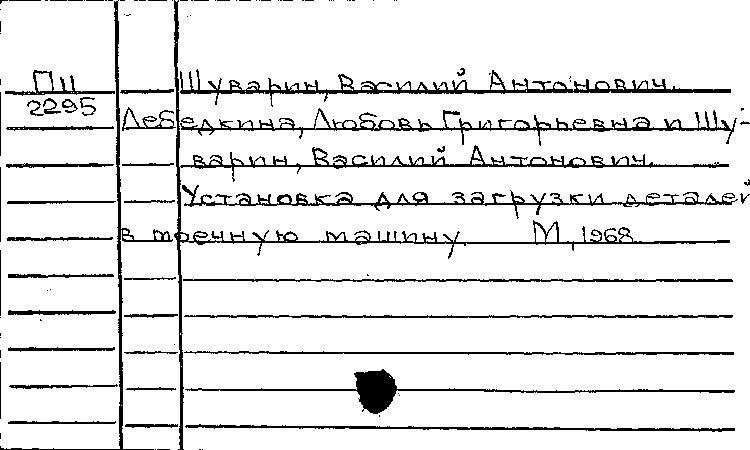 ПН
2295
Шуварин, Василий Антонович.
Лебедкина, Любовь Григорьевна и Шу-
варин, Василий Антонович.
Установка для загрузки деталей
в моечную машину. М., 1968